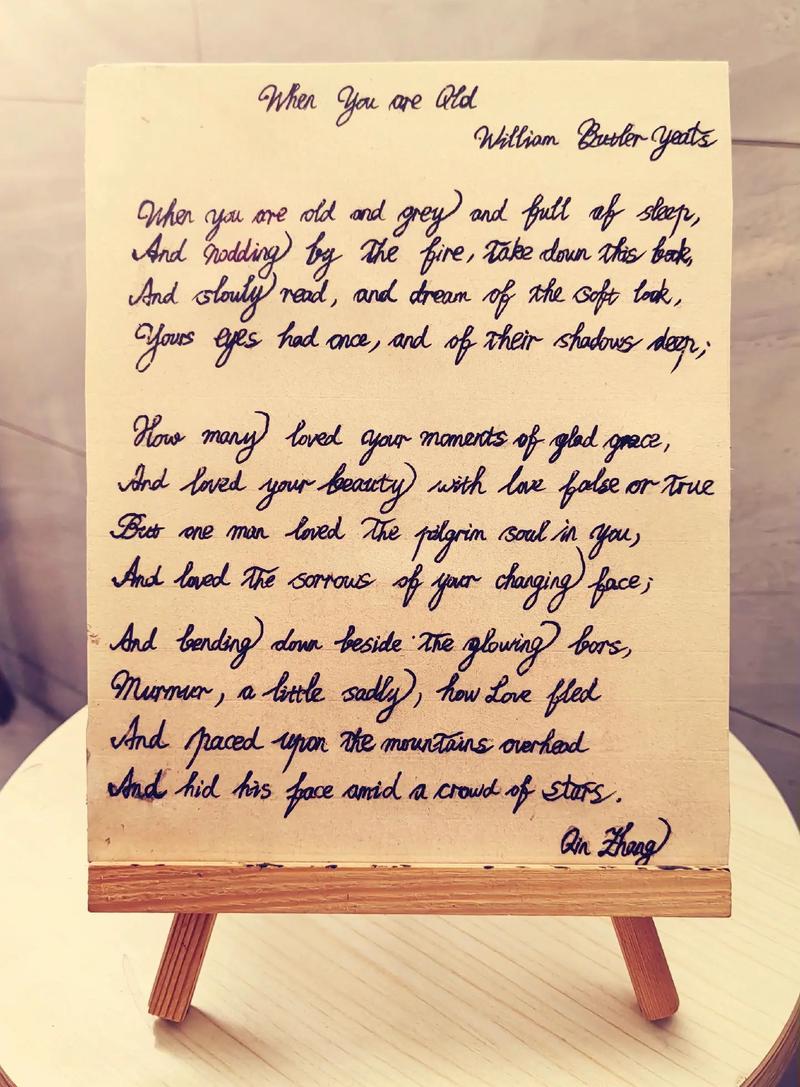 When You are Old
William Butler Yeats
When you are old and grey and full of sleep,
And nodding by the fire, take down this book,
And slowly read, and dream of the soft look,
Yours eyes had once, and of their shadows deep;
How many loved your moments of glad grace,
And loved your beauty with love false or true
But one man loved the pilgrim soul in you,
And loved the sorrows of your changing face;
And bending down beside the glowing bars,
Murmur, a little sadly, how Love fled
And paced upon the mountains overhead
And hid his face amid a crowd of stars.
Qin Zhang